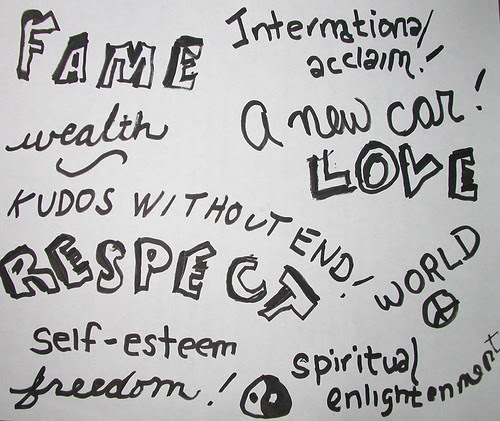 FAME
International
acclaim!
wealth
A new car!
LOVE
KUDOS WITHOUT END!
RESPECT
WORLD
self-esteem
freedom!
spiritual
enlightenment